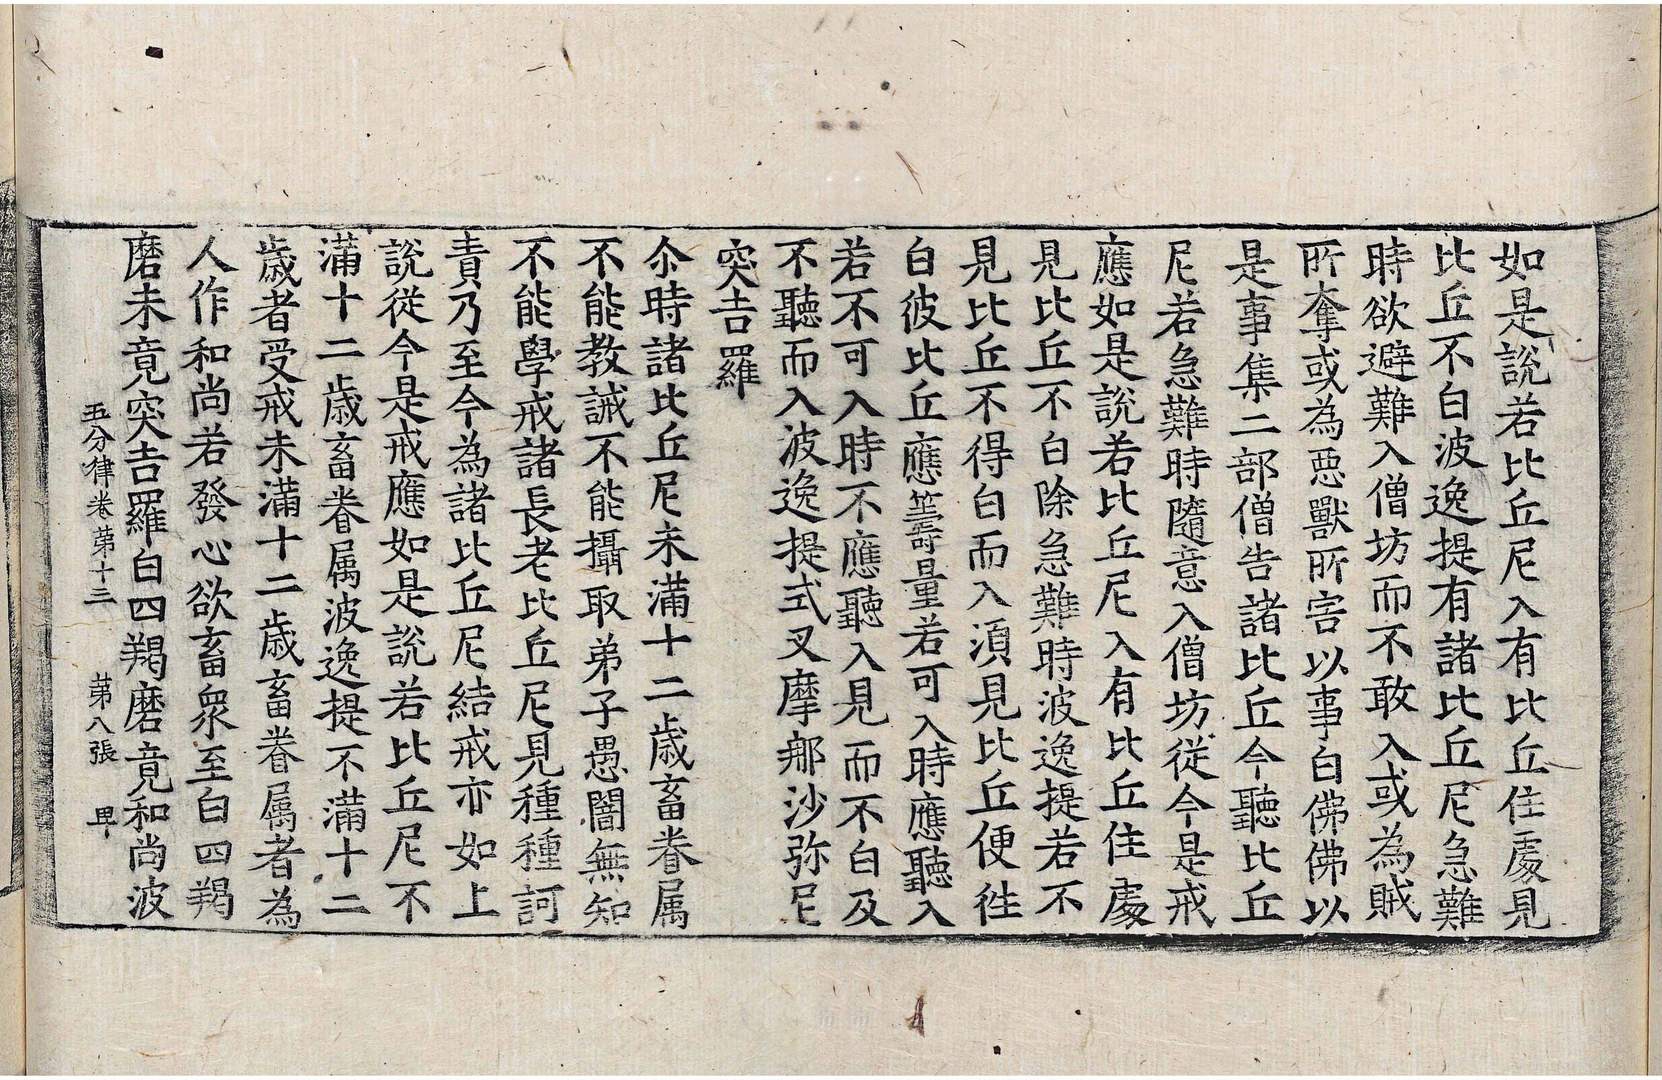 如是說若比丘尼入有比丘住處見
比丘不白波逸提有諸比丘尼急難
時欲避難入僧坊而不敢入或為賊
所奪或為惡獸所害以事白佛佛以
是事集二部僧告諸比丘今聽比丘
尼若急難時隨意入僧坊從今是戒
應如是說若比丘尼入有比丘住處
見比丘不白除急難時波逸提若不
見比丘不得白而入湏見比丘便徃
白彼比丘應籌量若可入時應聽入
若不可入時不應聽入見而不白及
不聽而入波逸提式叉摩那沙弥尼
突吉羅
尒時諸比丘尼未滿十二歲畜眷属
不能教誡不能攝取弟子愚闇無知
不能學戒諸長老比丘尼見種種訶
責乃至今為諸比丘尼結戒亦如上
說從今是戒應如是說若比丘尼不
滿十二歲畜眷属波逸提不滿十二
歲者受戒未滿十二歲畜眷属者為
人作和尚若發心欲畜衆至白四羯
磨未竟突吉羅白四羯磨竟和尚波
五分律卷第十三　第八張　甲